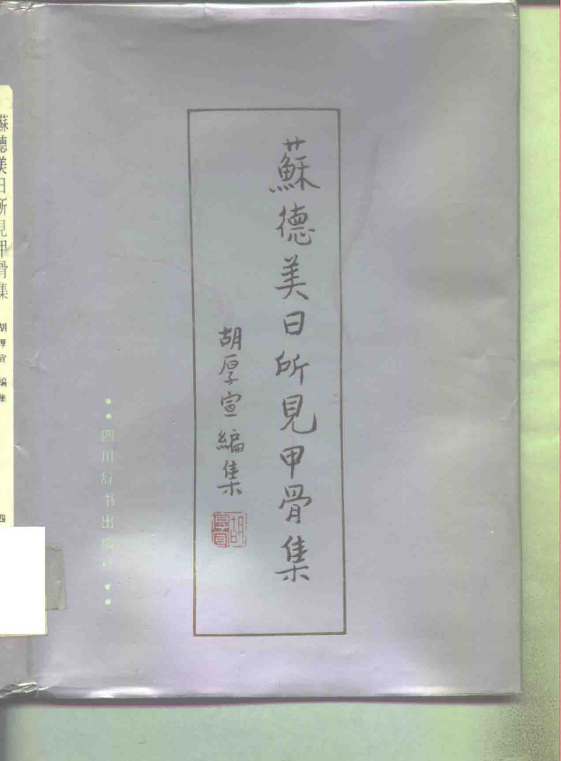 蘇德美日所見甲骨集
胡厚宣編集
胡厚宣
四川辞书出版社
蘇德美日所見甲骨集
胡厚宣 编集
四